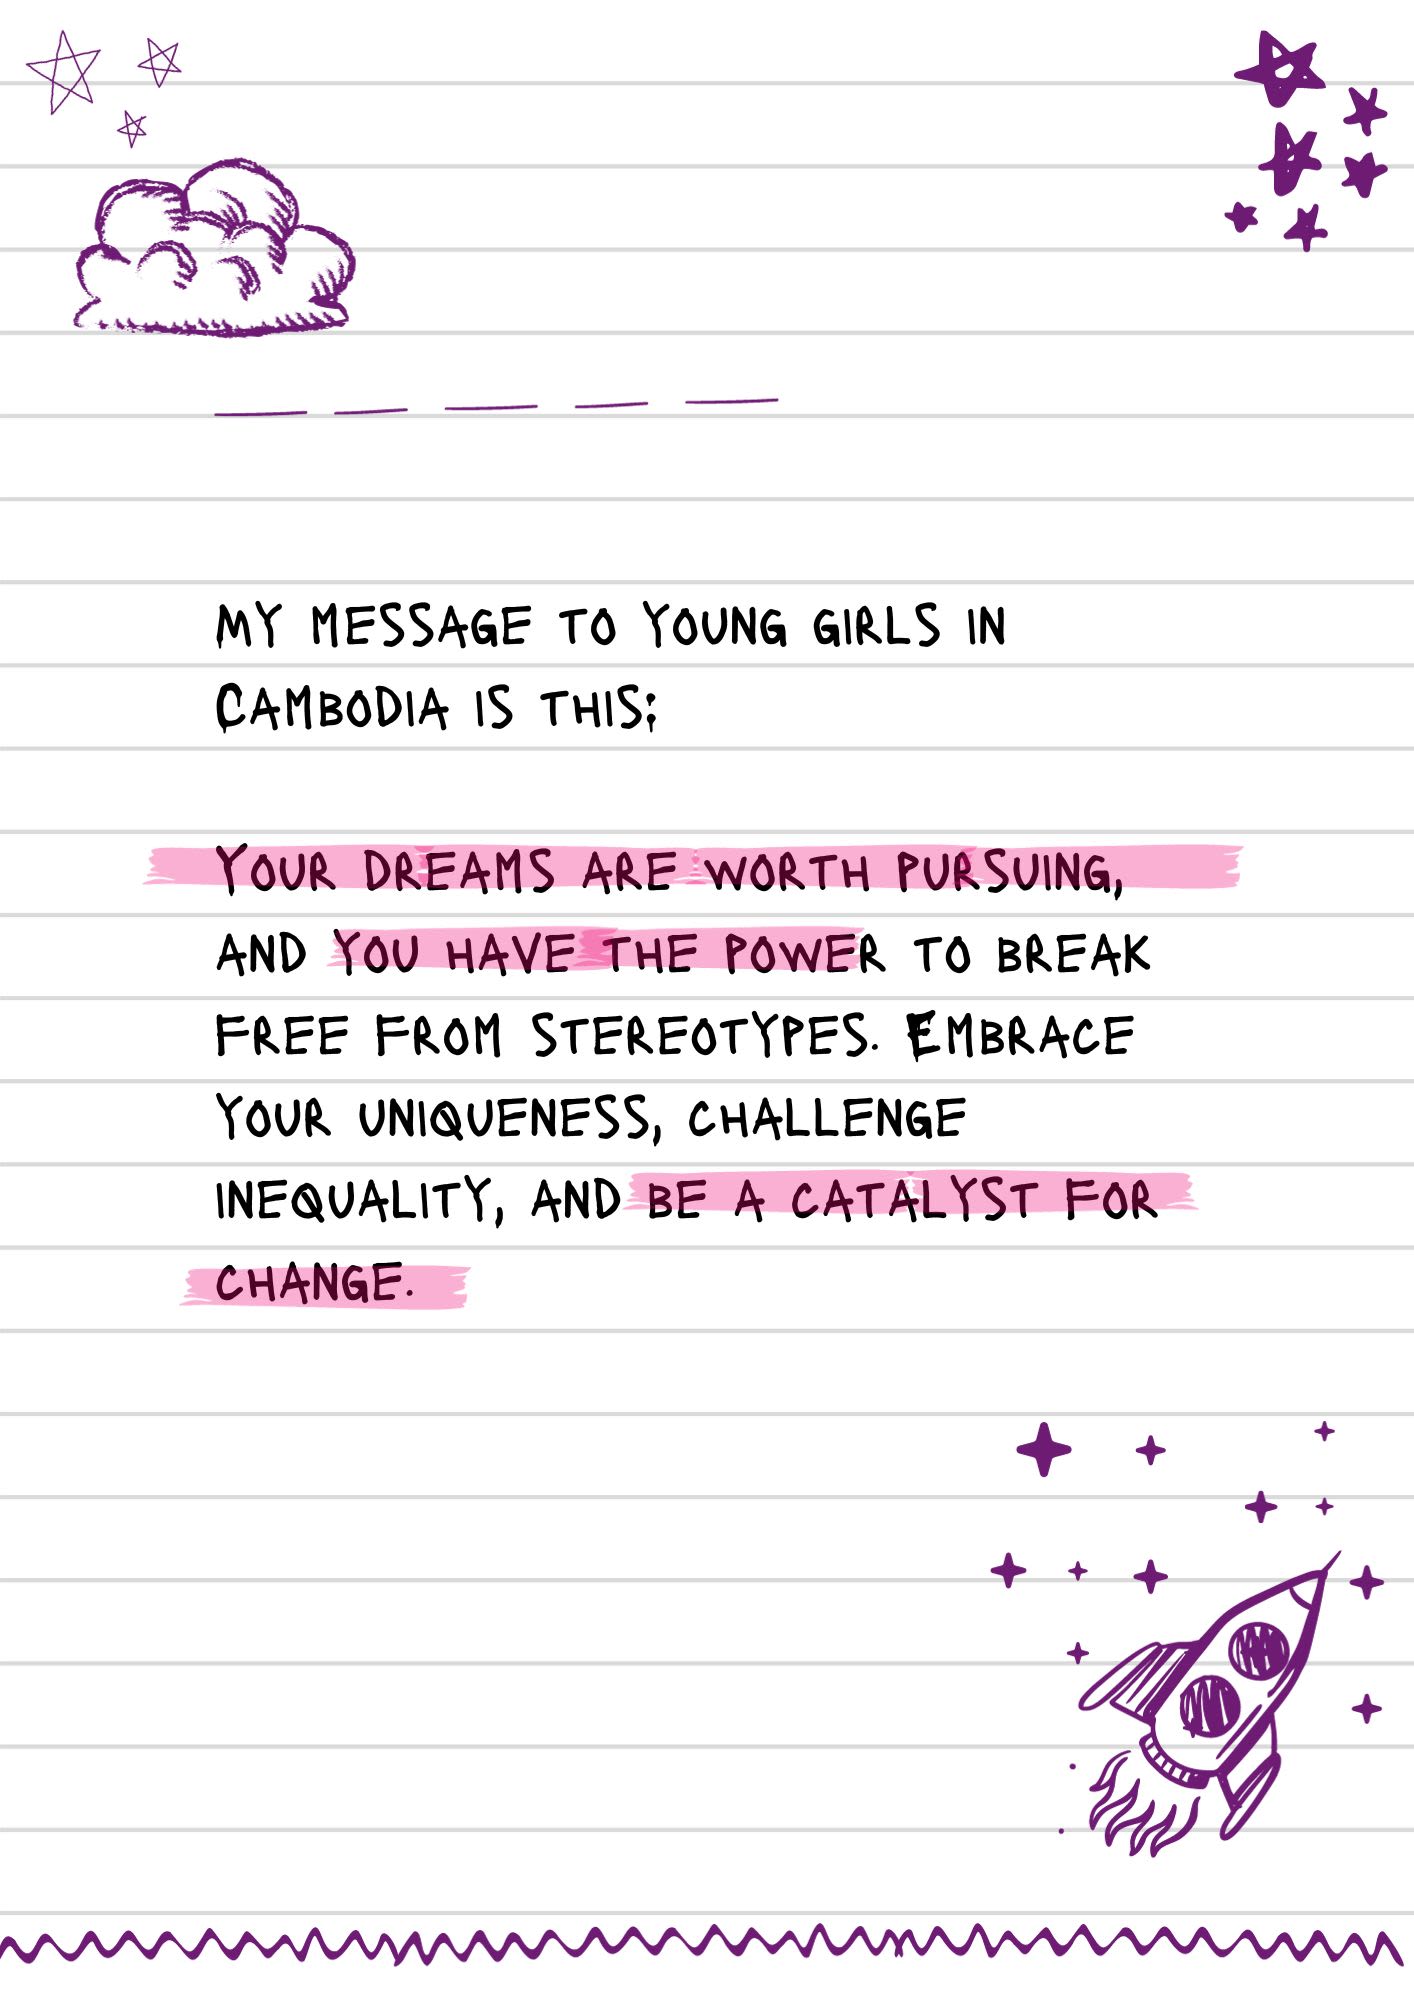 My message to young girls in
Cambodia is this:
Your dreams are worth pursuing,
and you have the power to break
free from stereotypes. Embrace
your uniqueness, challenge
inequality, and be a catalyst for
change.